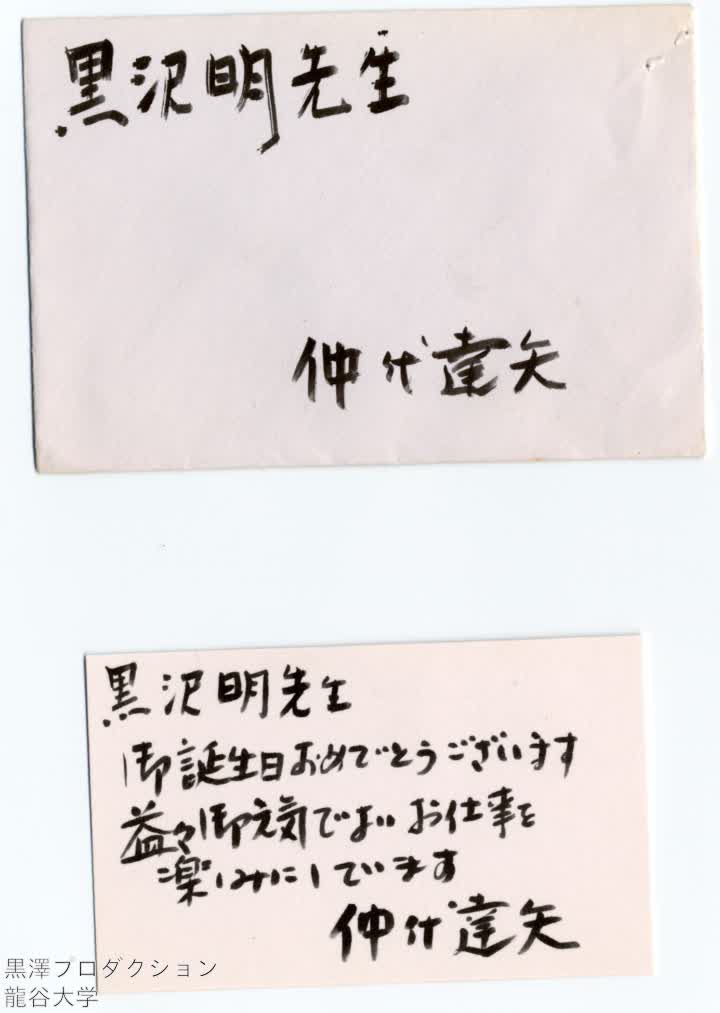 黒沢明先生
仲代達矢
黒沢明先生
御誕生日おめでとうございます
益々御元気でよいお仕事を
楽しみにしています
仲代達矢
黒澤プロダクション
龍谷大学